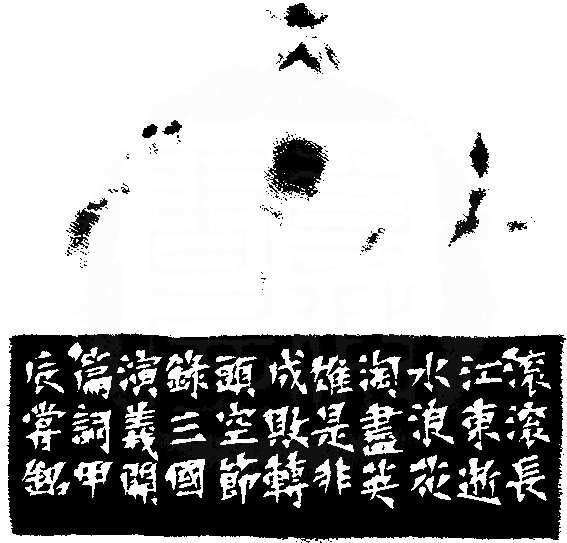 滚滚長
江東逝
水浪花
淘盡英
雄是非
成敗轉
頭空節
錄三國
演義開
篇詞甲
辰